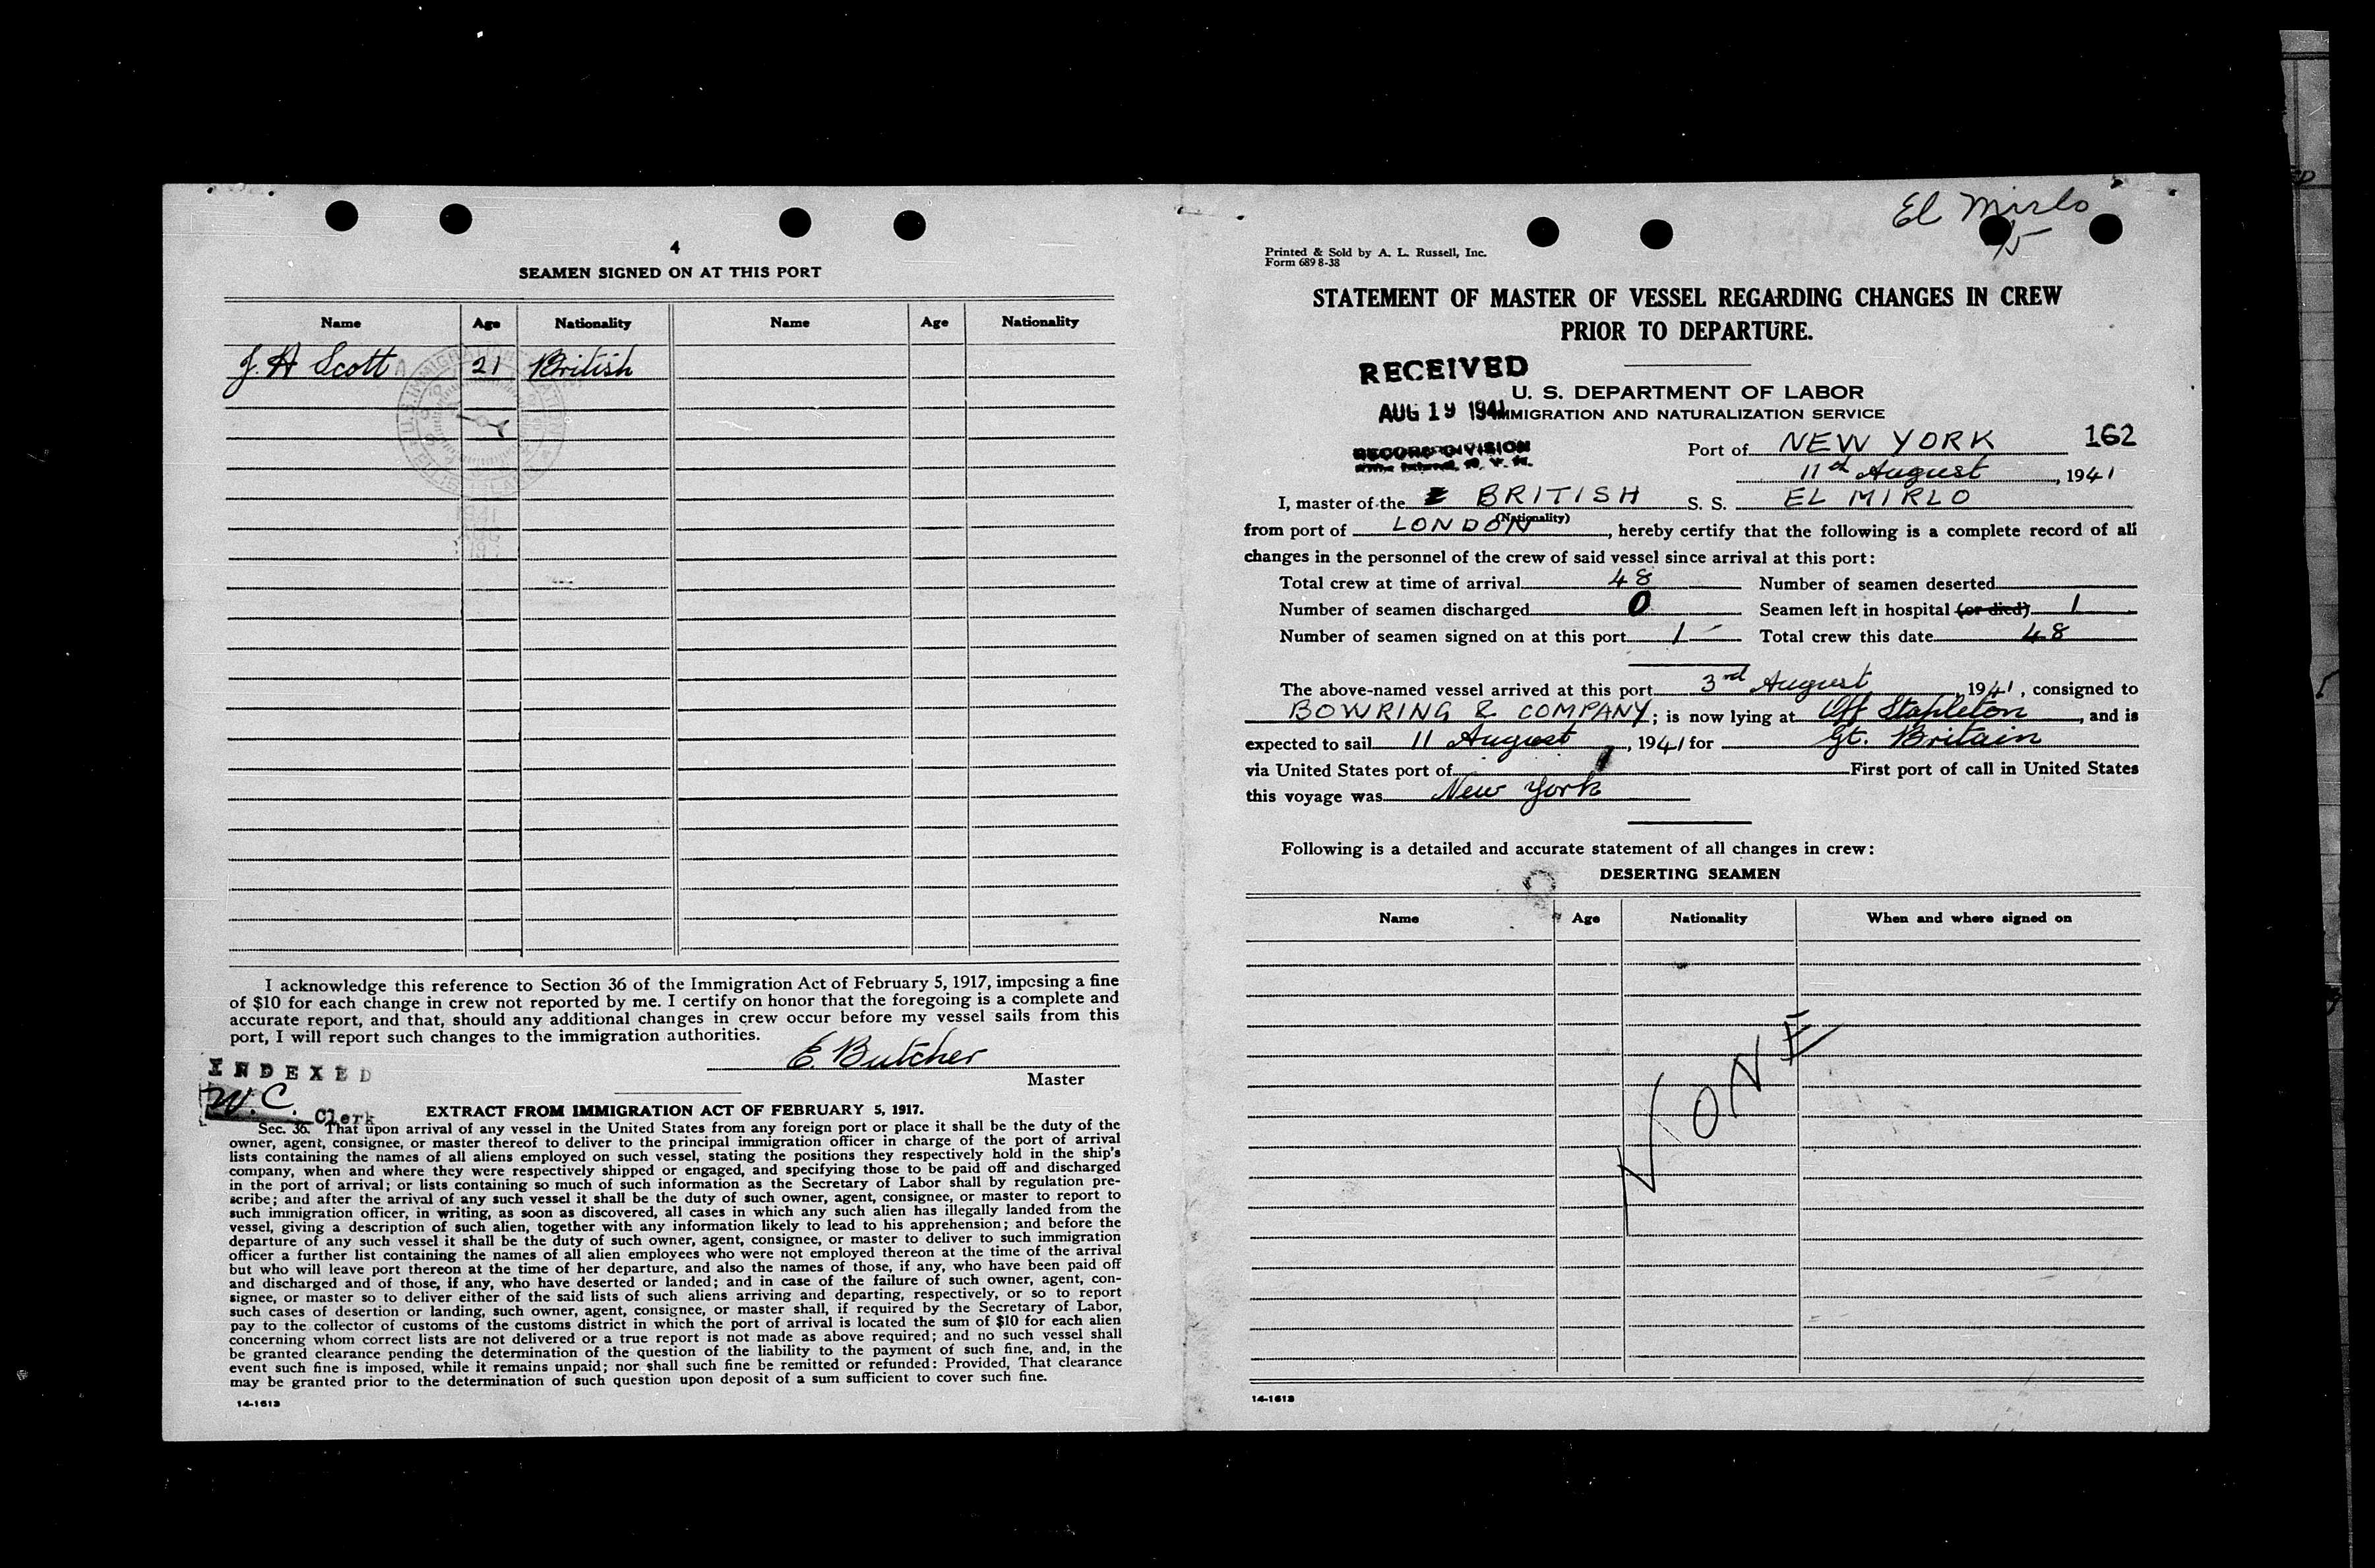 4
SEAMEN SIGNED ON AT THIS PORT
Name Age Nationality Name Age Nationality
J. A Scott 21 British
I acknowledge this reference to Section 36 of the Immigration Act of February 5, 1917, imposing a fine
of $10 for each change in crew not reported by me. I certify on honor that the foregoing is a complete and
accurate report, and that, should any additional changes in crew occur before my vessel sails from this
port, I will report such changes to the immigration authorities.
E. Butcher
Master
INDEXED
W.C. Clerk
EXTRACT FROM IMMIGRATION ACT OF FEBRUARY 5, 1917.
Sec. 36. That upon arrival of any vessel in the United States from any foreign port or place it shall be the duty of the
owner, agent, consignee, or master thereof to deliver to the principal immigration officer in charge of the port of arrival
lists containing the names of all aliens employed on such vessel, stating the positions they respectively hold in the ship's
company, when and where they were respectively shipped or engaged, and specifying those to be paid off and discharged
in the port of arrival; or lists containing so much of such information as the Secretary of Labor shall by regulation pre-
scribe; and after the arrival of any such vessel it shall be the duty of such owner, agent, consignee, or master to report to
such immigration officer, in writing, as soon as discovered, all cases in which any such alien has illegally landed from the
vessel, giving a description of such alien, together with any information likely to lead to his apprehension; and before the
departure of any such vessel it shall be the duty of such owner, agent, consignee, or master to deliver to such immigration
officer a further list containing the names of all alien employees who were not employed thereon at the time of the arrival
but who will leave port thereon at the time of her departure, and also the names of those, if any, who have been paid off
and discharged and of those, if any, who have deserted or landed; and in case of the failure of such owner, agent, con-
signee, or master so to deliver either of the said lists of such aliens arriving and departing, respectively, or so to report
such cases of desertion or landing, such owner, agent, consignee, or master shall, if required by the Secretary of Labor,
pay to the collector of customs of the customs district in which the port of arrival is located the sum of $10 for each alien
concerning whom correct lists are not delivered or a true report is not made as above required; and no such vessel shall
be granted clearance pending the determination of the question of the liability to the payment of such fine, and, in the
event such fine is imposed, while it remains unpaid; nor shall such fine be remitted or refunded: Provided, That clearance
may be granted prior to the determination of such question upon deposit of a sum sufficient to cover such fine.
14-1613
El Mirlo
15
Printed & Sold by A. L. Russell, Inc.
Form 689 8-38
STATEMENT OF MASTER OF VESSEL REGARDING CHANGES IN CREW
PRIOR TO DEPARTURE.
RECEIVED
U. S. DEPARTMENT OF LABOR
AUG 19 1941 IMMIGRATION AND NATURALIZATION SERVICE
RECORD DIVISION
Port of NEW YORK 162
11th August, 1941
I, master of the BRITISH S. S. EL MIRLO
(Nationality)
from port of LONDON, hereby certify that the following is a complete record of all
changes in the personnel of the crew of said vessel since arrival at this port:
Total crew at time of arrival 48 Number of seamen deserted
Number of seamen discharged 0 Seamen left in hospital (or died) 1
Number of seamen signed on at this port 1 Total crew this date 48
The above-named vessel arrived at this port 3rd August, 1941, consigned to
BOWRING & COMPANY; is now lying at Off Stapleton, and is
expected to sail 11 August, 1941 for Gt. Britain
via United States port of First port of call in United States
this voyage was New York
Following is a detailed and accurate statement of all changes in crew:
DESERTING SEAMEN
Name Age Nationality When and where signed on
NONE
14-1613